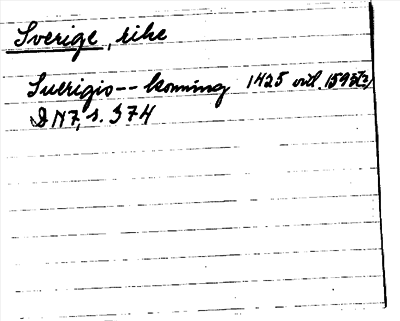 Sverige, rike
Suerigis-- konning 1425 avs. 1593
DN 7, s. 374